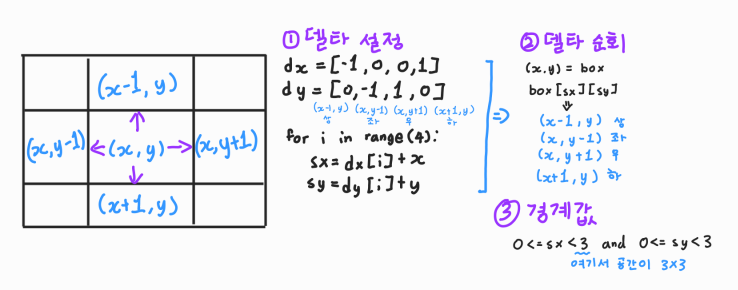 (x-1, y)
(x,y-1) (x,y) (x,y+1)
(x+1,y)
① 델타 설정
dx = [-1, 0, 0, 1]
dy = [0, -1, 1, 0]
(x-1, y) (x,y-1) (x,y+1) (x+1,y)
상 좌 우 하
for i in range(4):
sx = dx[i]+x
sy = dy[i]+y
⇒
② 델타 순회
(x.y) = box
box[sx][sy]
(x-1, y) 상
(x, y-1) 좌
(x, y+1) 우
(x+1, y) 하
③ 경계값
0<=sx<3 and 0<=sy<3
여기서 공간이 3x3